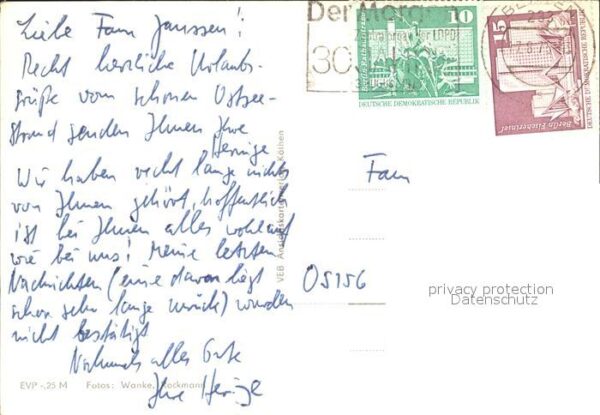 Liebe Fam Janssen!
Recht herzliche Urlaubs-
grüße vom schönen Ostsee-
strand senden Ihnen Ihre
Heringe
Wir haben recht lange nichts
von Ihnen gehört, hoffentlich
ist bei Ihnen alles wohlauf
wie bei uns! Meine letzten
Nachrichten (eine davon liegt
schon sehr lange zurück) wurden
nicht bestätigt
Nochmals alles Gute
Ihre Heringe
EVP -,25 M Fotos: Wanke,
VEB
Köthen
Der Morg
30
10
DEUTSCHE DEMOKRATISCHE REPUBLIK
15
Berlin Fischerinsel
DEUTSCHE DEMOKRATISCHE REPUBLIK
Fam
05156
privacy protection
Datenschutz